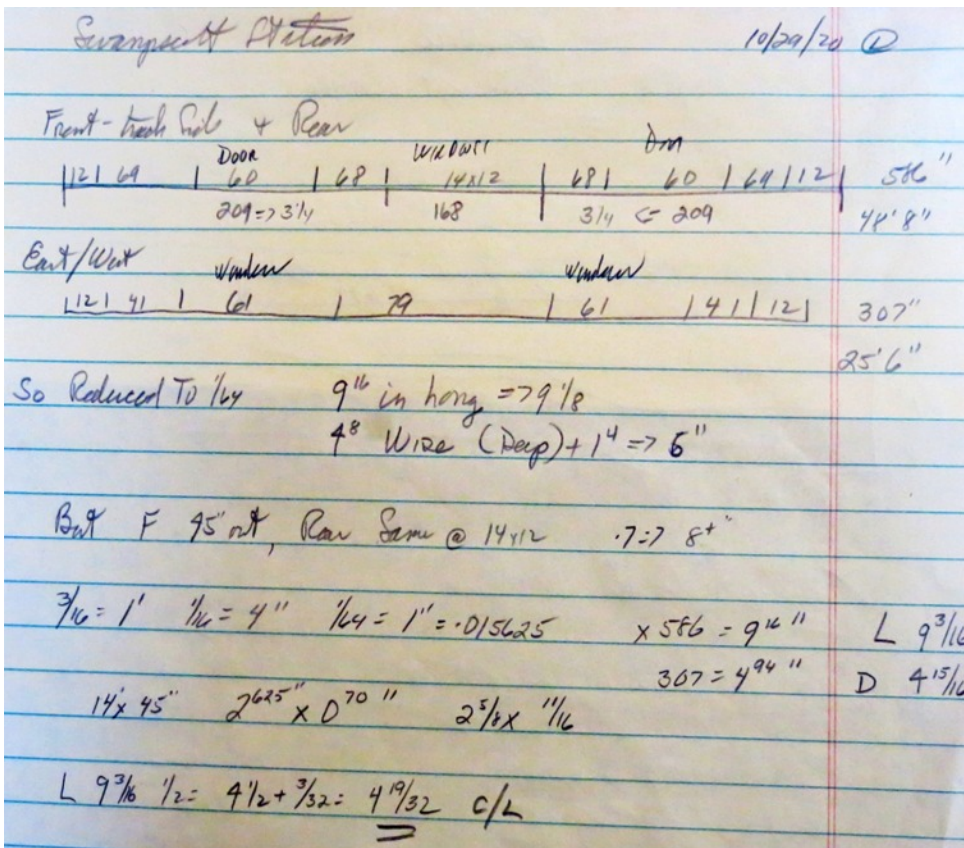 Swampscott Station 10/29/20 ①
Front - track Side & Rear
DOOR WINDOWS Door
12 | 69 | 60 | 68 | 14x12 | 68 | 60 | 69 | 12 586"
209 => 3 1/4 168 3 1/4 <= 209 48' 8"
East/West Window Window
12 | 41 | 61 | 79 | 61 | 41 | 12 307"
25' 6"
So Reduced To 1/64 9 16 in long => 9 1/8
4 8 Wide (Deep) + 1 4 => 6"
But F 45" out, Rear Same @ 14x12 .7 => 8+"
3/16 = 1' 1/16 = 4" 1/64 = 1" = .015625 x 586 = 9 16 " L 9 3/16
307 = 4 94 " D 4 15/16
14' x 45" 2 625" x 0 70 " 2 5/8 x 11/16
L 9 3/16 1/2 = 4 1/2 + 3/32 = 4 19/32 C/L